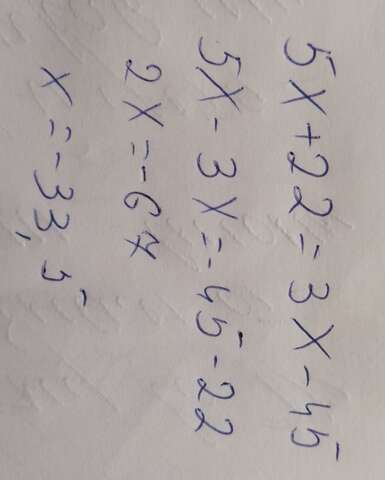 5x+22=3x-45
5x-3x=-45-22
2x=-67
x=-33,5